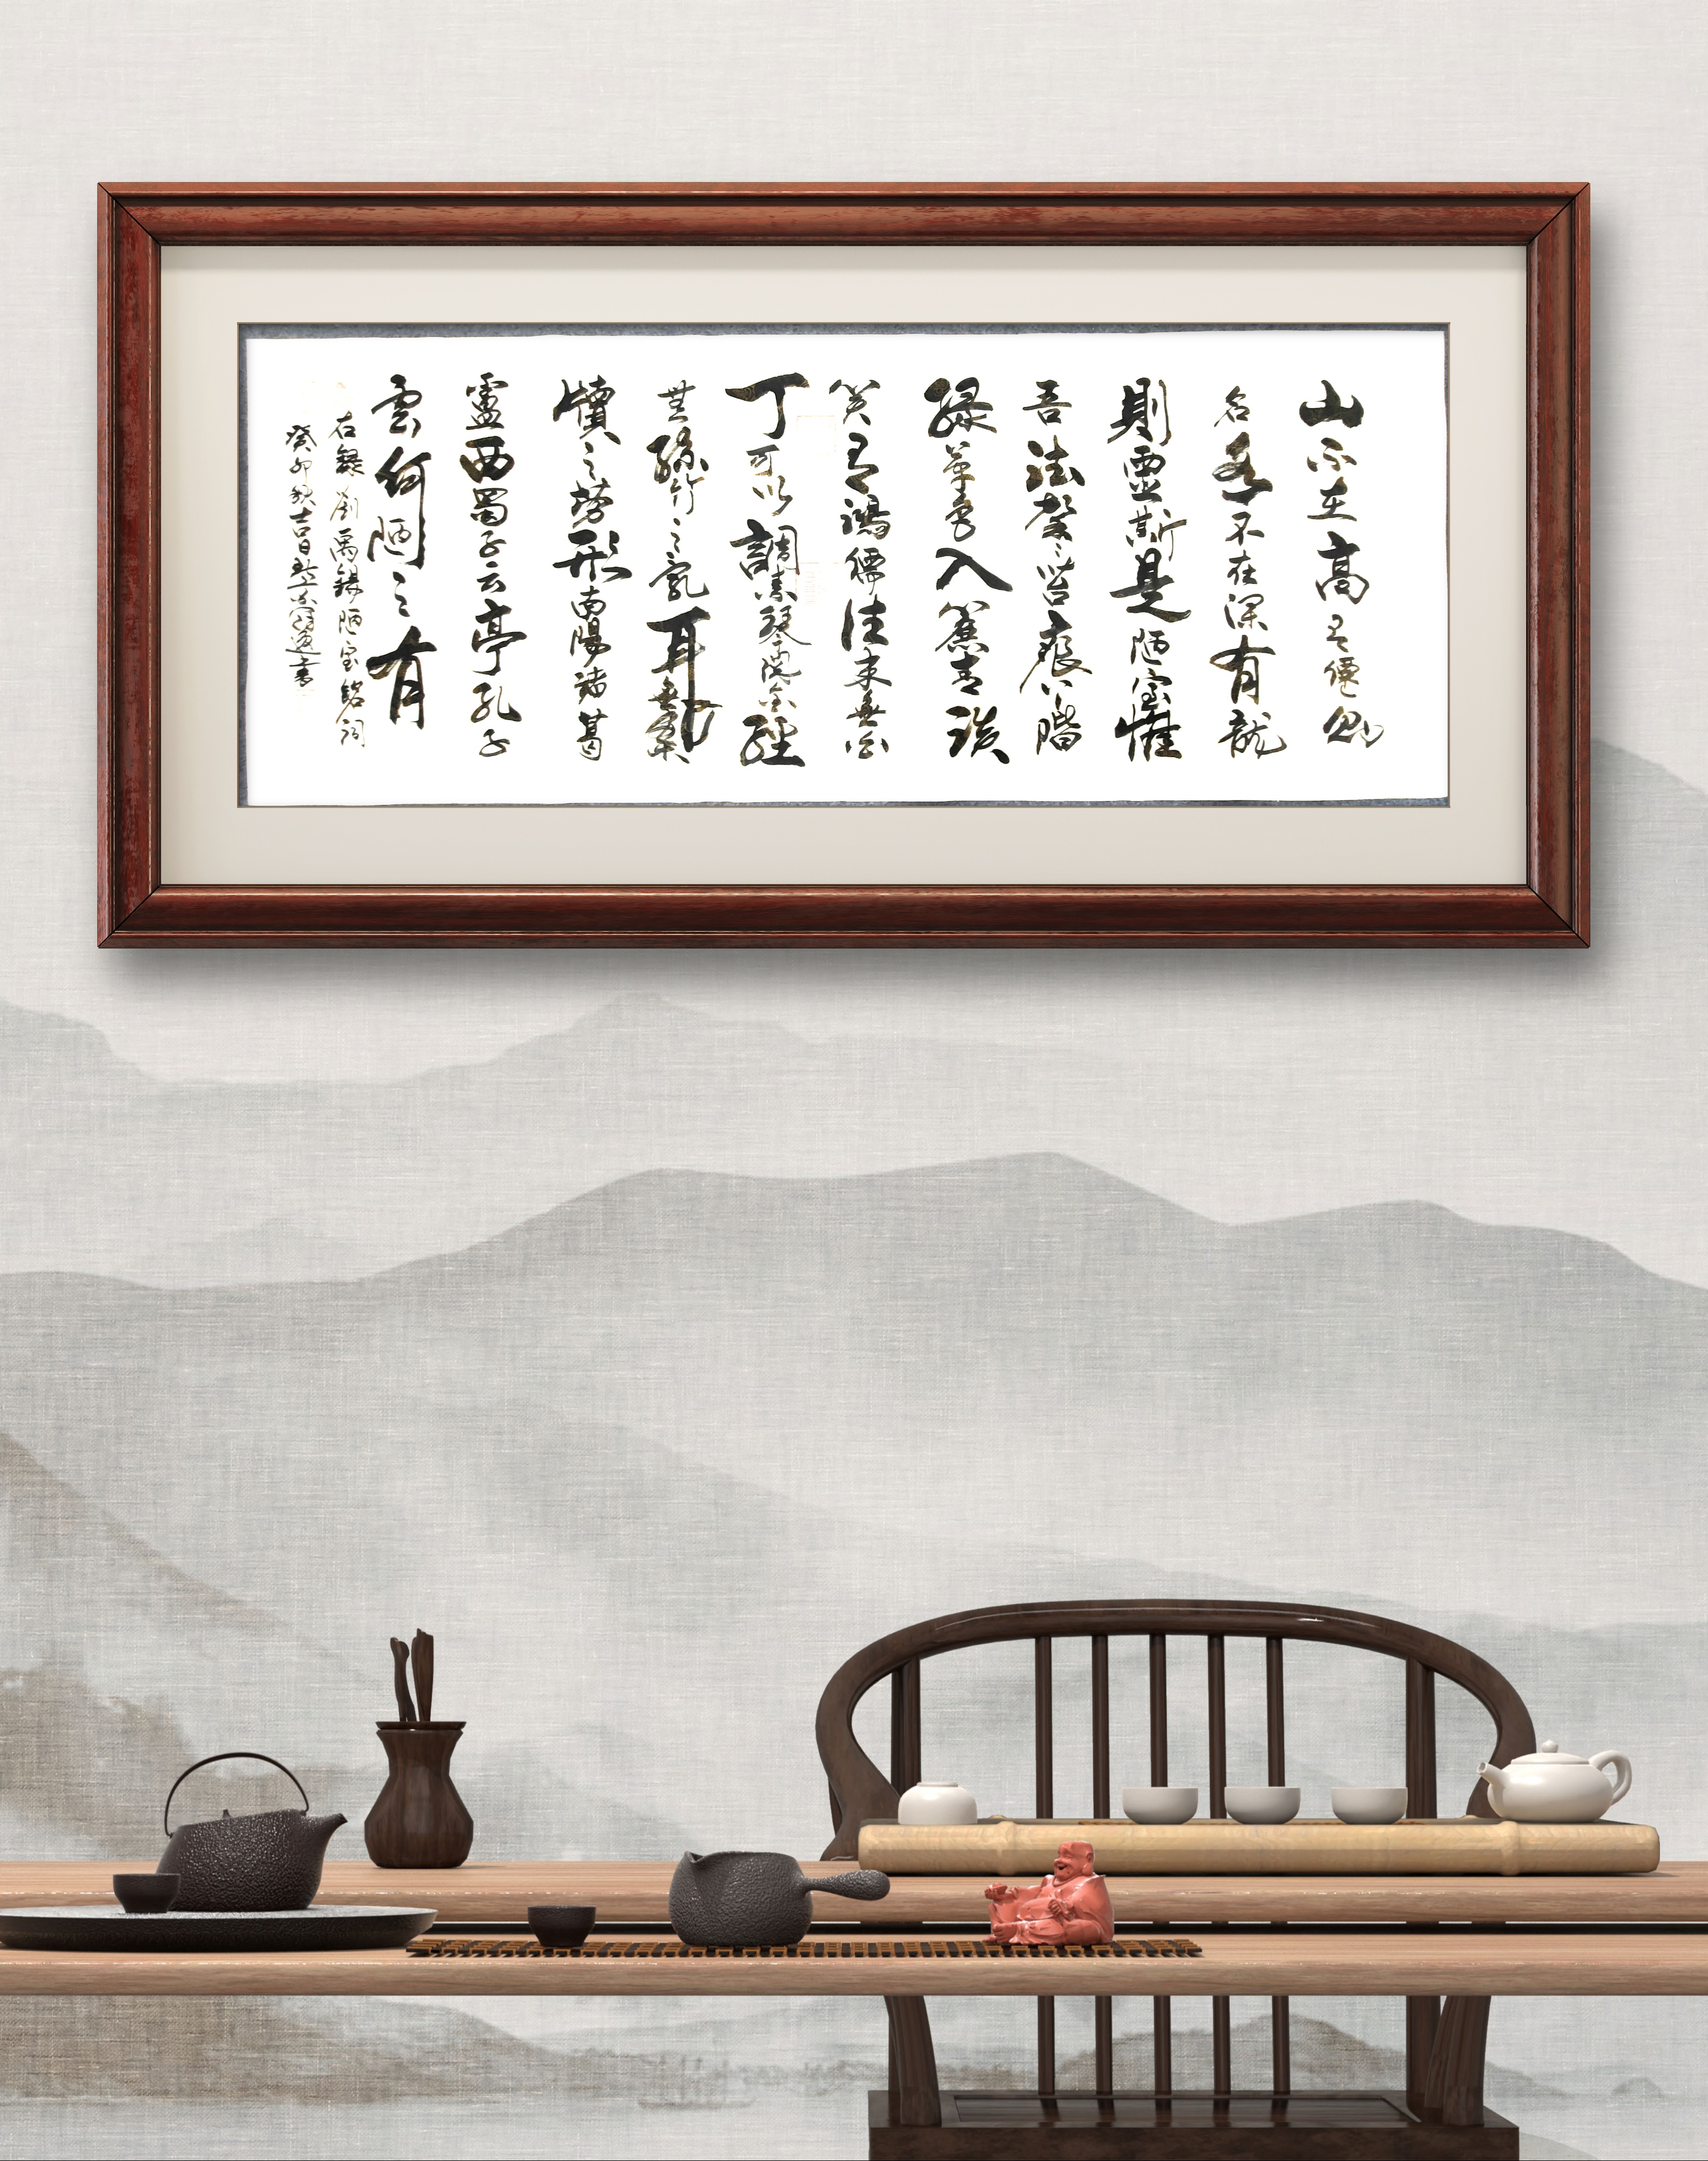 山不在高有僊則
名水不在深有龍
則靈斯是陋室惟
吾德馨苔痕上階
緑草色入簾青談
笑有鴻儒往来無白
丁可以調素琴閲金經
無絲竹之亂耳無案
牘之勞形南陽諸葛
廬西蜀子云亭孔子
雲何陋之有
右録劉禹錫陋室銘詞
癸卯秋吉日書